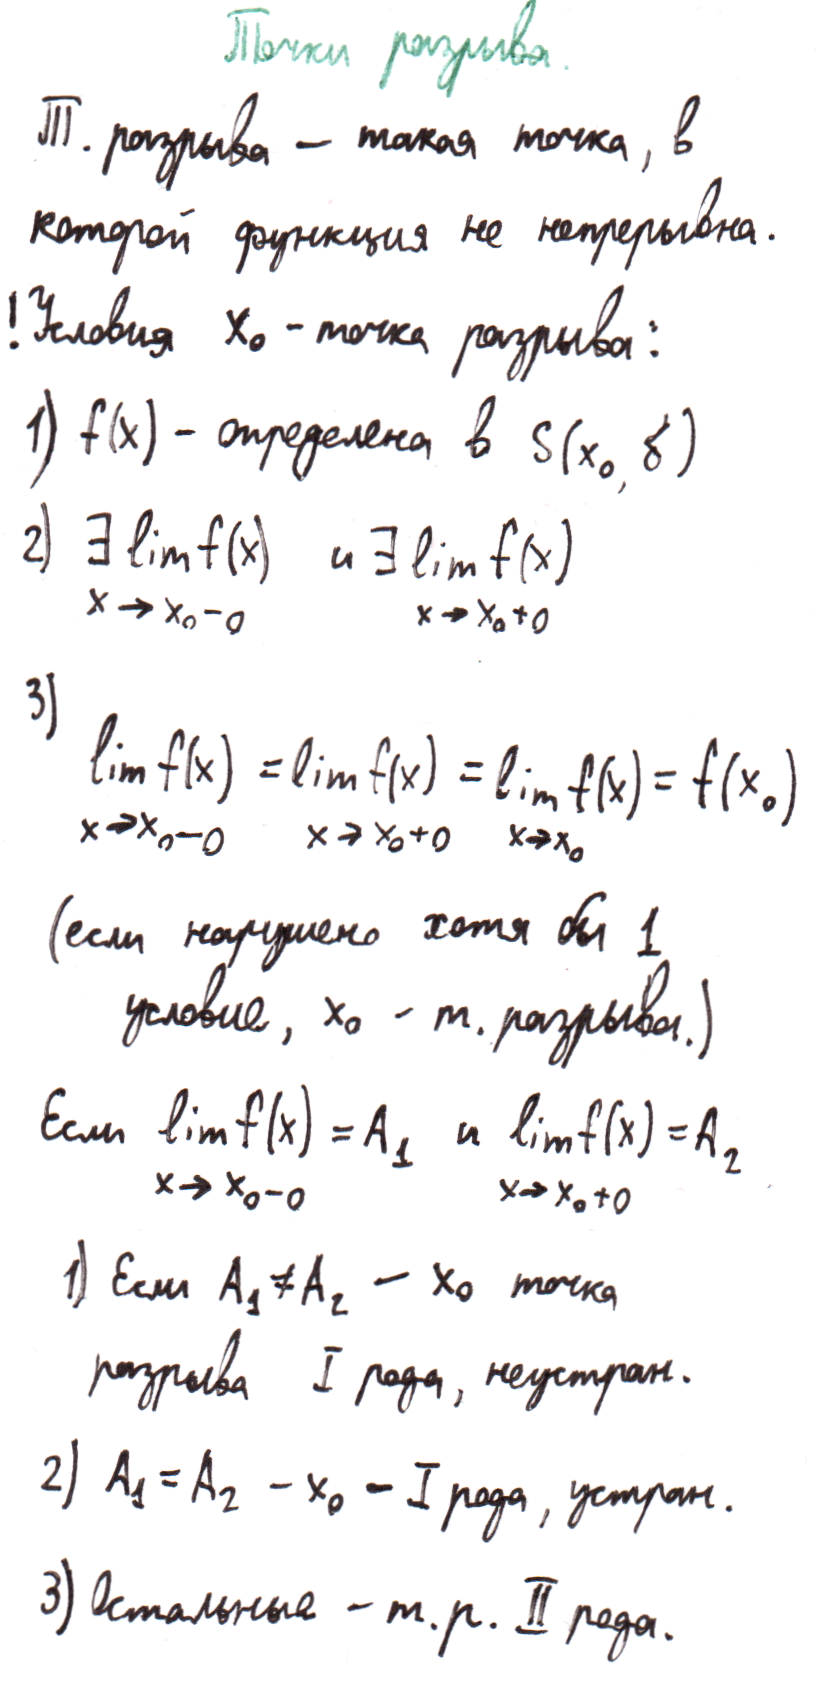 Точки разрыва.
Т. разрыва — такая точка, в
которой функция не непрерывна.
! Условия x₀ - точка разрыва:
1) f(x) - определена в S(x₀, δ)
2) ∃ lim f(x) и ∃ lim f(x)
x → x₀-0 x → x₀+0
3)
lim f(x) = lim f(x) = lim f(x) = f(x₀)
x→x₀-0 x→x₀+0 x→x₀
(если нарушено хотя бы 1
условие, x₀ - т. разрыва.)
Если lim f(x) = A₁ и lim f(x) = A₂
x→ x₀-0 x→ x₀+0
1) Если A₁ ≠ A₂ — x₀ точка
разрыва I рода, неустран.
2) A₁ = A₂ - x₀ - I рода, устран.
3) Остальные - т.р. II рода.